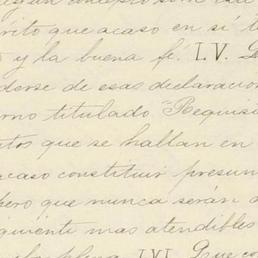 rito que acaso en sí l
y la buena fé. LV. D
derse de esas declaracion
rno titulado "Requisi
tos que se hallan en
acaso constituir presun
pero que nunca serán d
quiente mas atendibles
LVI. Que co